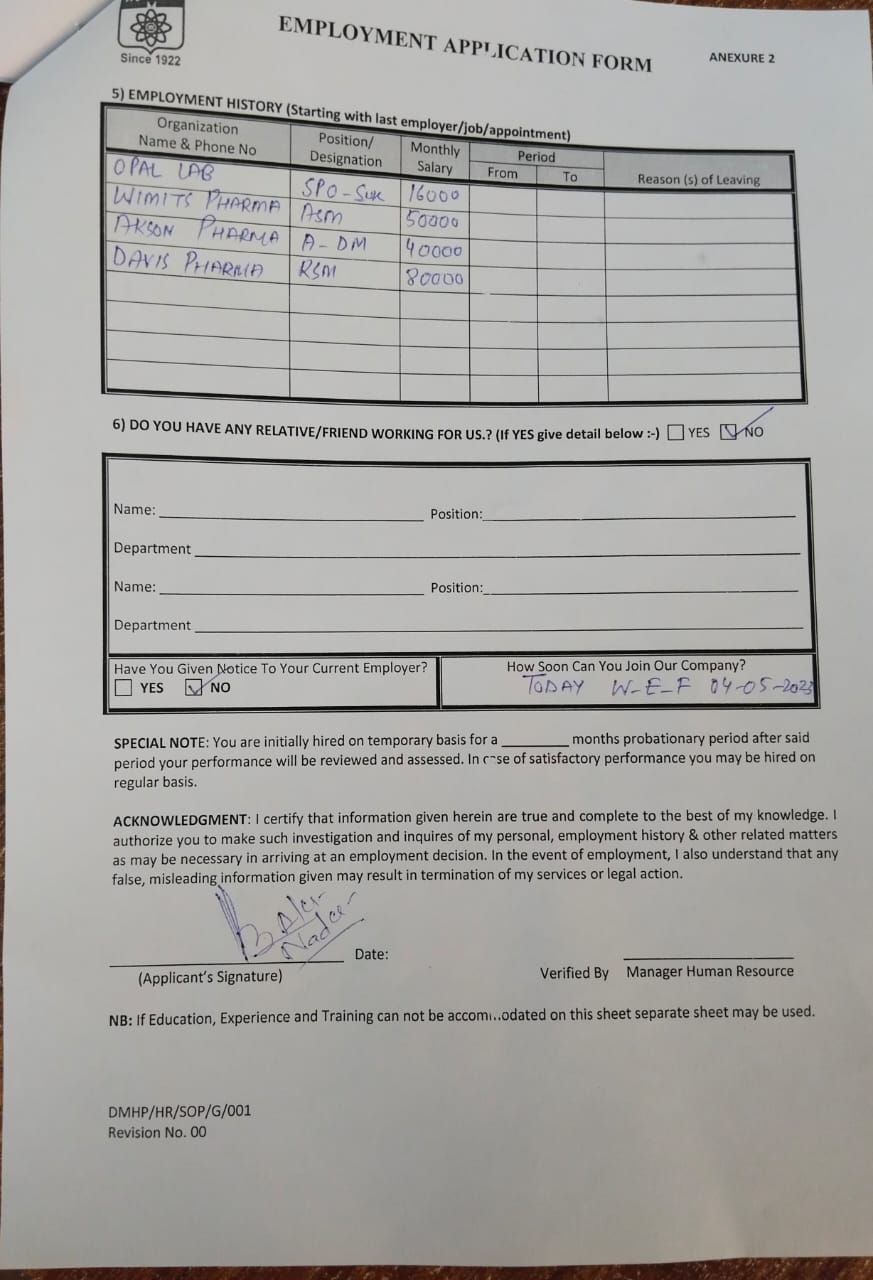 EMPLOYMENT APPLICATION FORM
ANEXURE 2
Since 1922
5) EMPLOYMENT HISTORY (Starting with last employer/job/appointment)
Organization Name & Phone No Position/ Designation Monthly Salary Period From To Reason (s) of Leaving
OPAL LAB SPO-Suk 16000
WIMITS PHARMA ASM 50000
AKSON PHARMA A-DM 40000
DAVIS PHARMA RSM 80000
6) DO YOU HAVE ANY RELATIVE/FRIEND WORKING FOR US.? (If YES give detail below :-) YES NO
Name: Position:
Department
Name: Position:
Department
Have You Given Notice To Your Current Employer?
YES NO
How Soon Can You Join Our Company?
TODAY W-E-F 04-05-2023
SPECIAL NOTE: You are initially hired on temporary basis for a ________ months probationary period after said
period your performance will be reviewed and assessed. In case of satisfactory performance you may be hired on
regular basis.
ACKNOWLEDGMENT: I certify that information given herein are true and complete to the best of my knowledge. I
authorize you to make such investigation and inquires of my personal, employment history & other related matters
as may be necessary in arriving at an employment decision. In the event of employment, I also understand that any
false, misleading information given may result in termination of my services or legal action.
Date:
(Applicant's Signature)
Verified By Manager Human Resource
NB: If Education, Experience and Training can not be accommodated on this sheet separate sheet may be used.
DMHP/HR/SOP/G/001
Revision No. 00